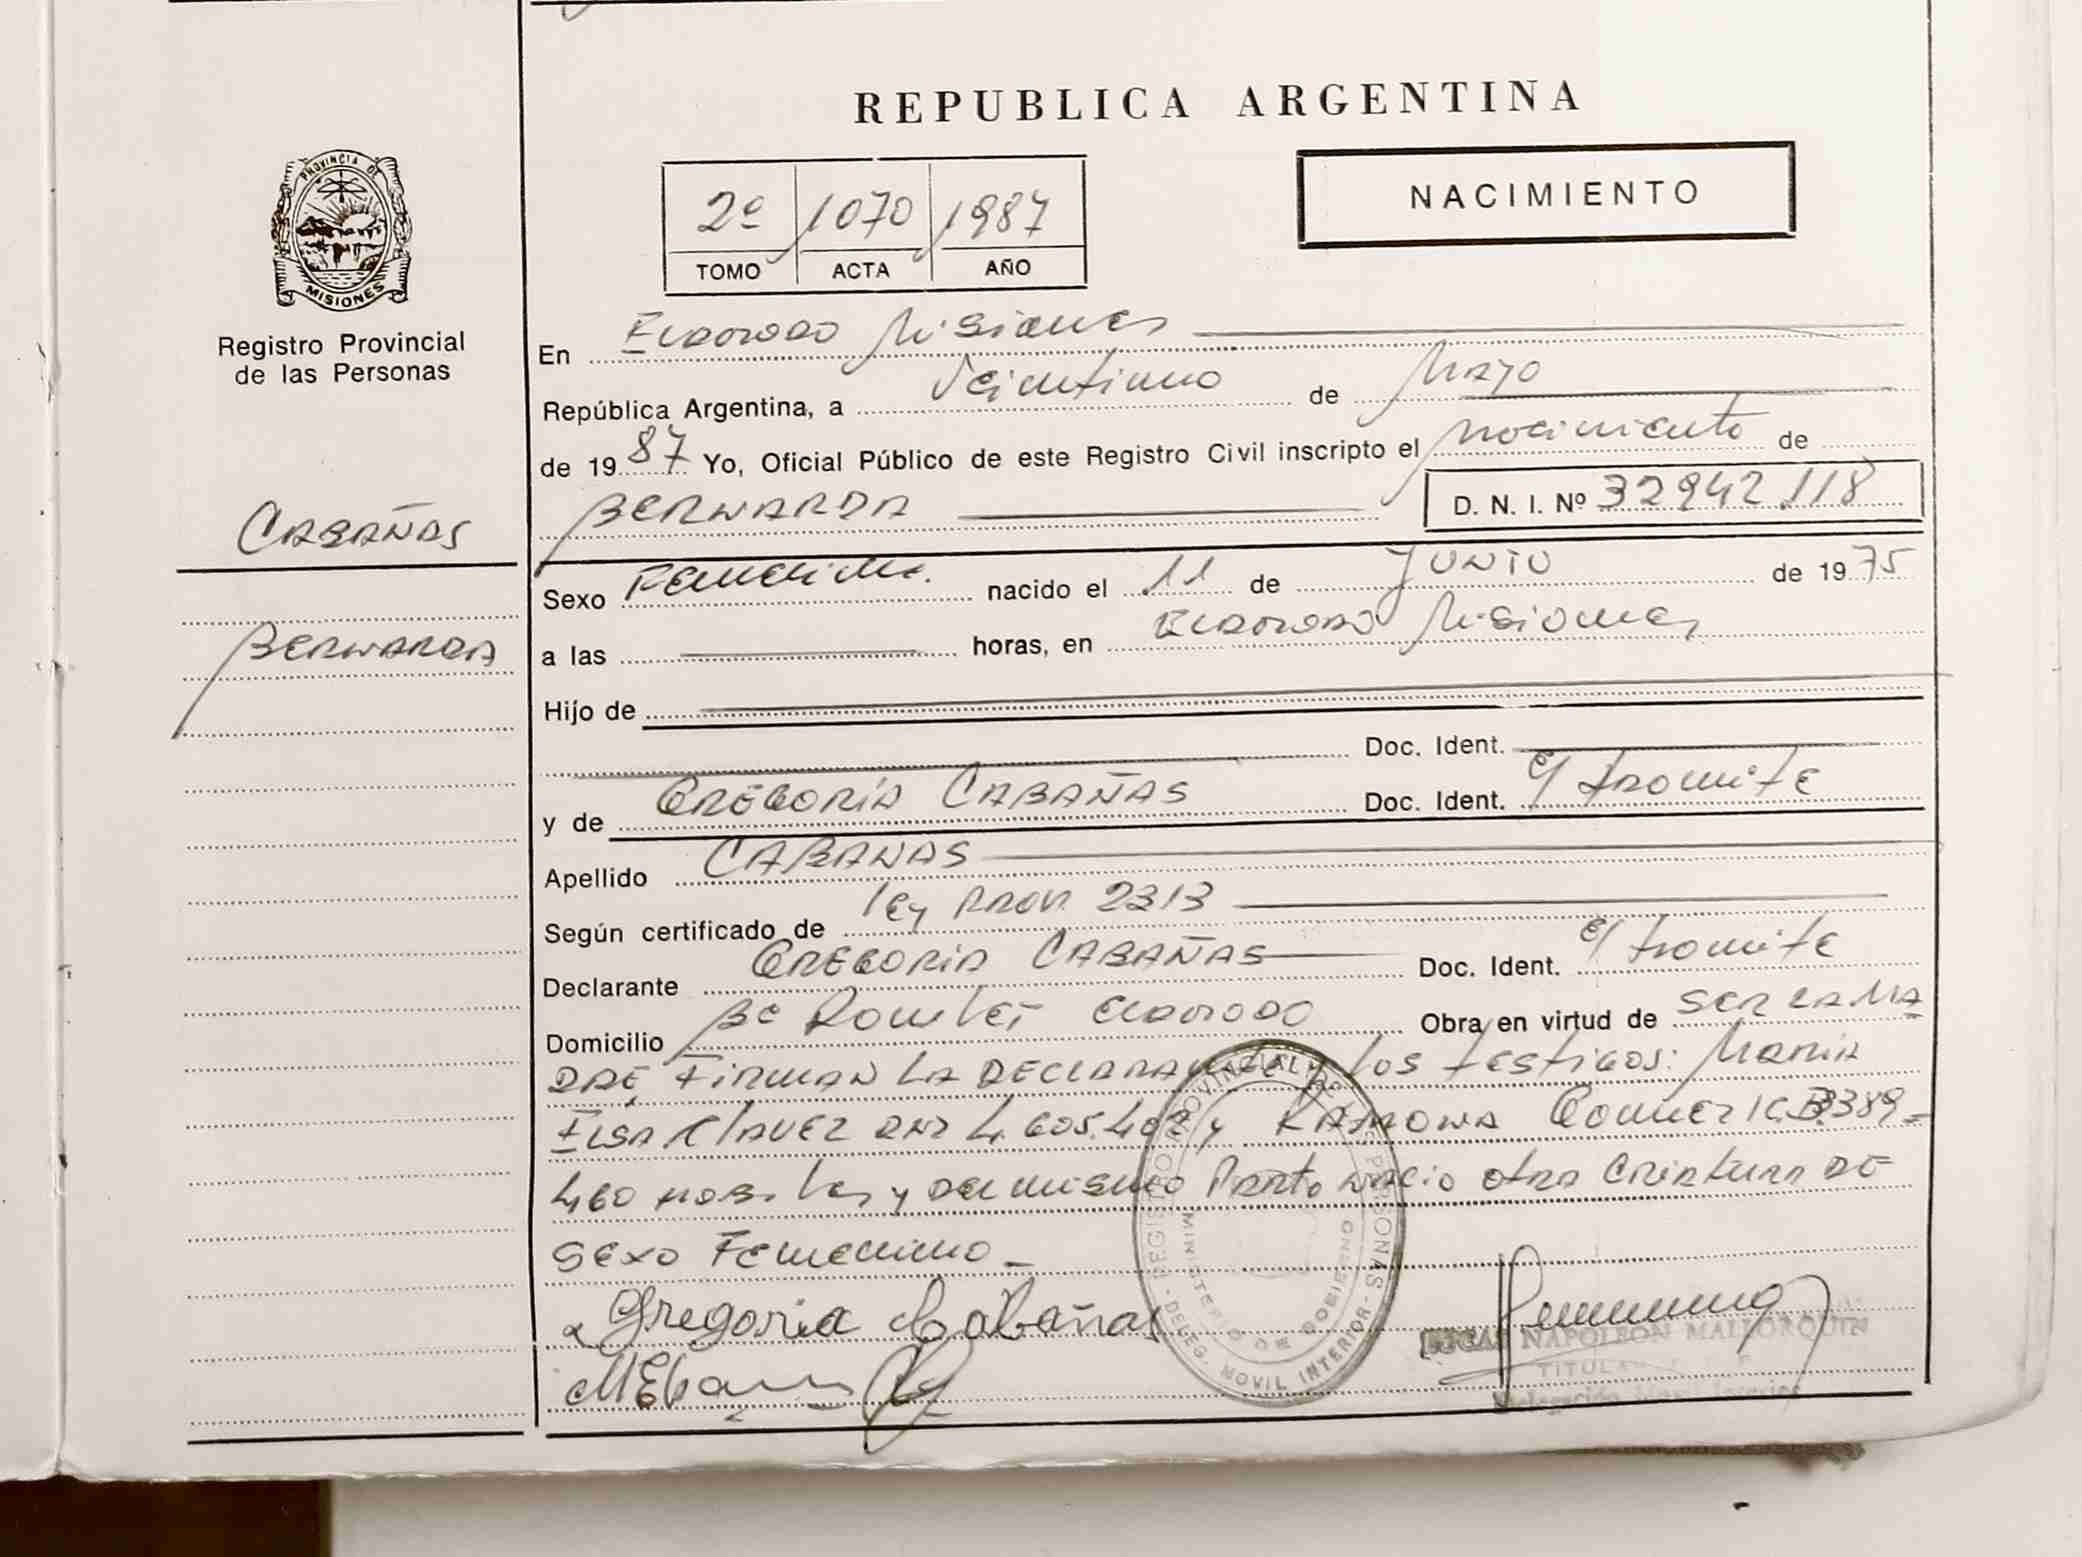 REPUBLICA ARGENTINA
PROVINCIA DE MISIONES
Registro Provincial
de las Personas
2º 1070 1987
TOMO ACTA AÑO
NACIMIENTO
CABAÑAS
BERNARDA
En Eldorado Misiones
República Argentina, a Veintiuno de Mayo
de 1987 Yo, Oficial Público de este Registro Civil inscripto el nacimiento de
BERNARDA D. N. I. Nº 32942.118
Sexo Femenino. nacido el 11 de JUNIO de 1975
a las horas, en Eldorado Misiones
Hijo de
Doc. Ident.
y de GREGORIA CABAÑAS Doc. Ident. e/ tramite
Apellido CABAÑAS
Según certificado de ley Prov. 2313
Declarante GREGORIA CABAÑAS Doc. Ident. e/ tramite
Domicilio Bº Eldorado Obra en virtud de SER LA MA
DRE, FIRMAN LA DECLARANTE y los testigos: MARIA
ELSA DNI 4.605.402 y RAMONA 389-
460 y del mismo Parto nacio otra criatura DE
sexo Femenino -
Gregoria Cabañas
REGISTRO PROVINCIAL DE LAS PERSONAS
MINISTERIO DE GOBIERNO
- DELEG. MOVIL INTERIOR -
LUCAS NAPOLEON MALLORQUIN
TITULAR
Delegación Movil Interior